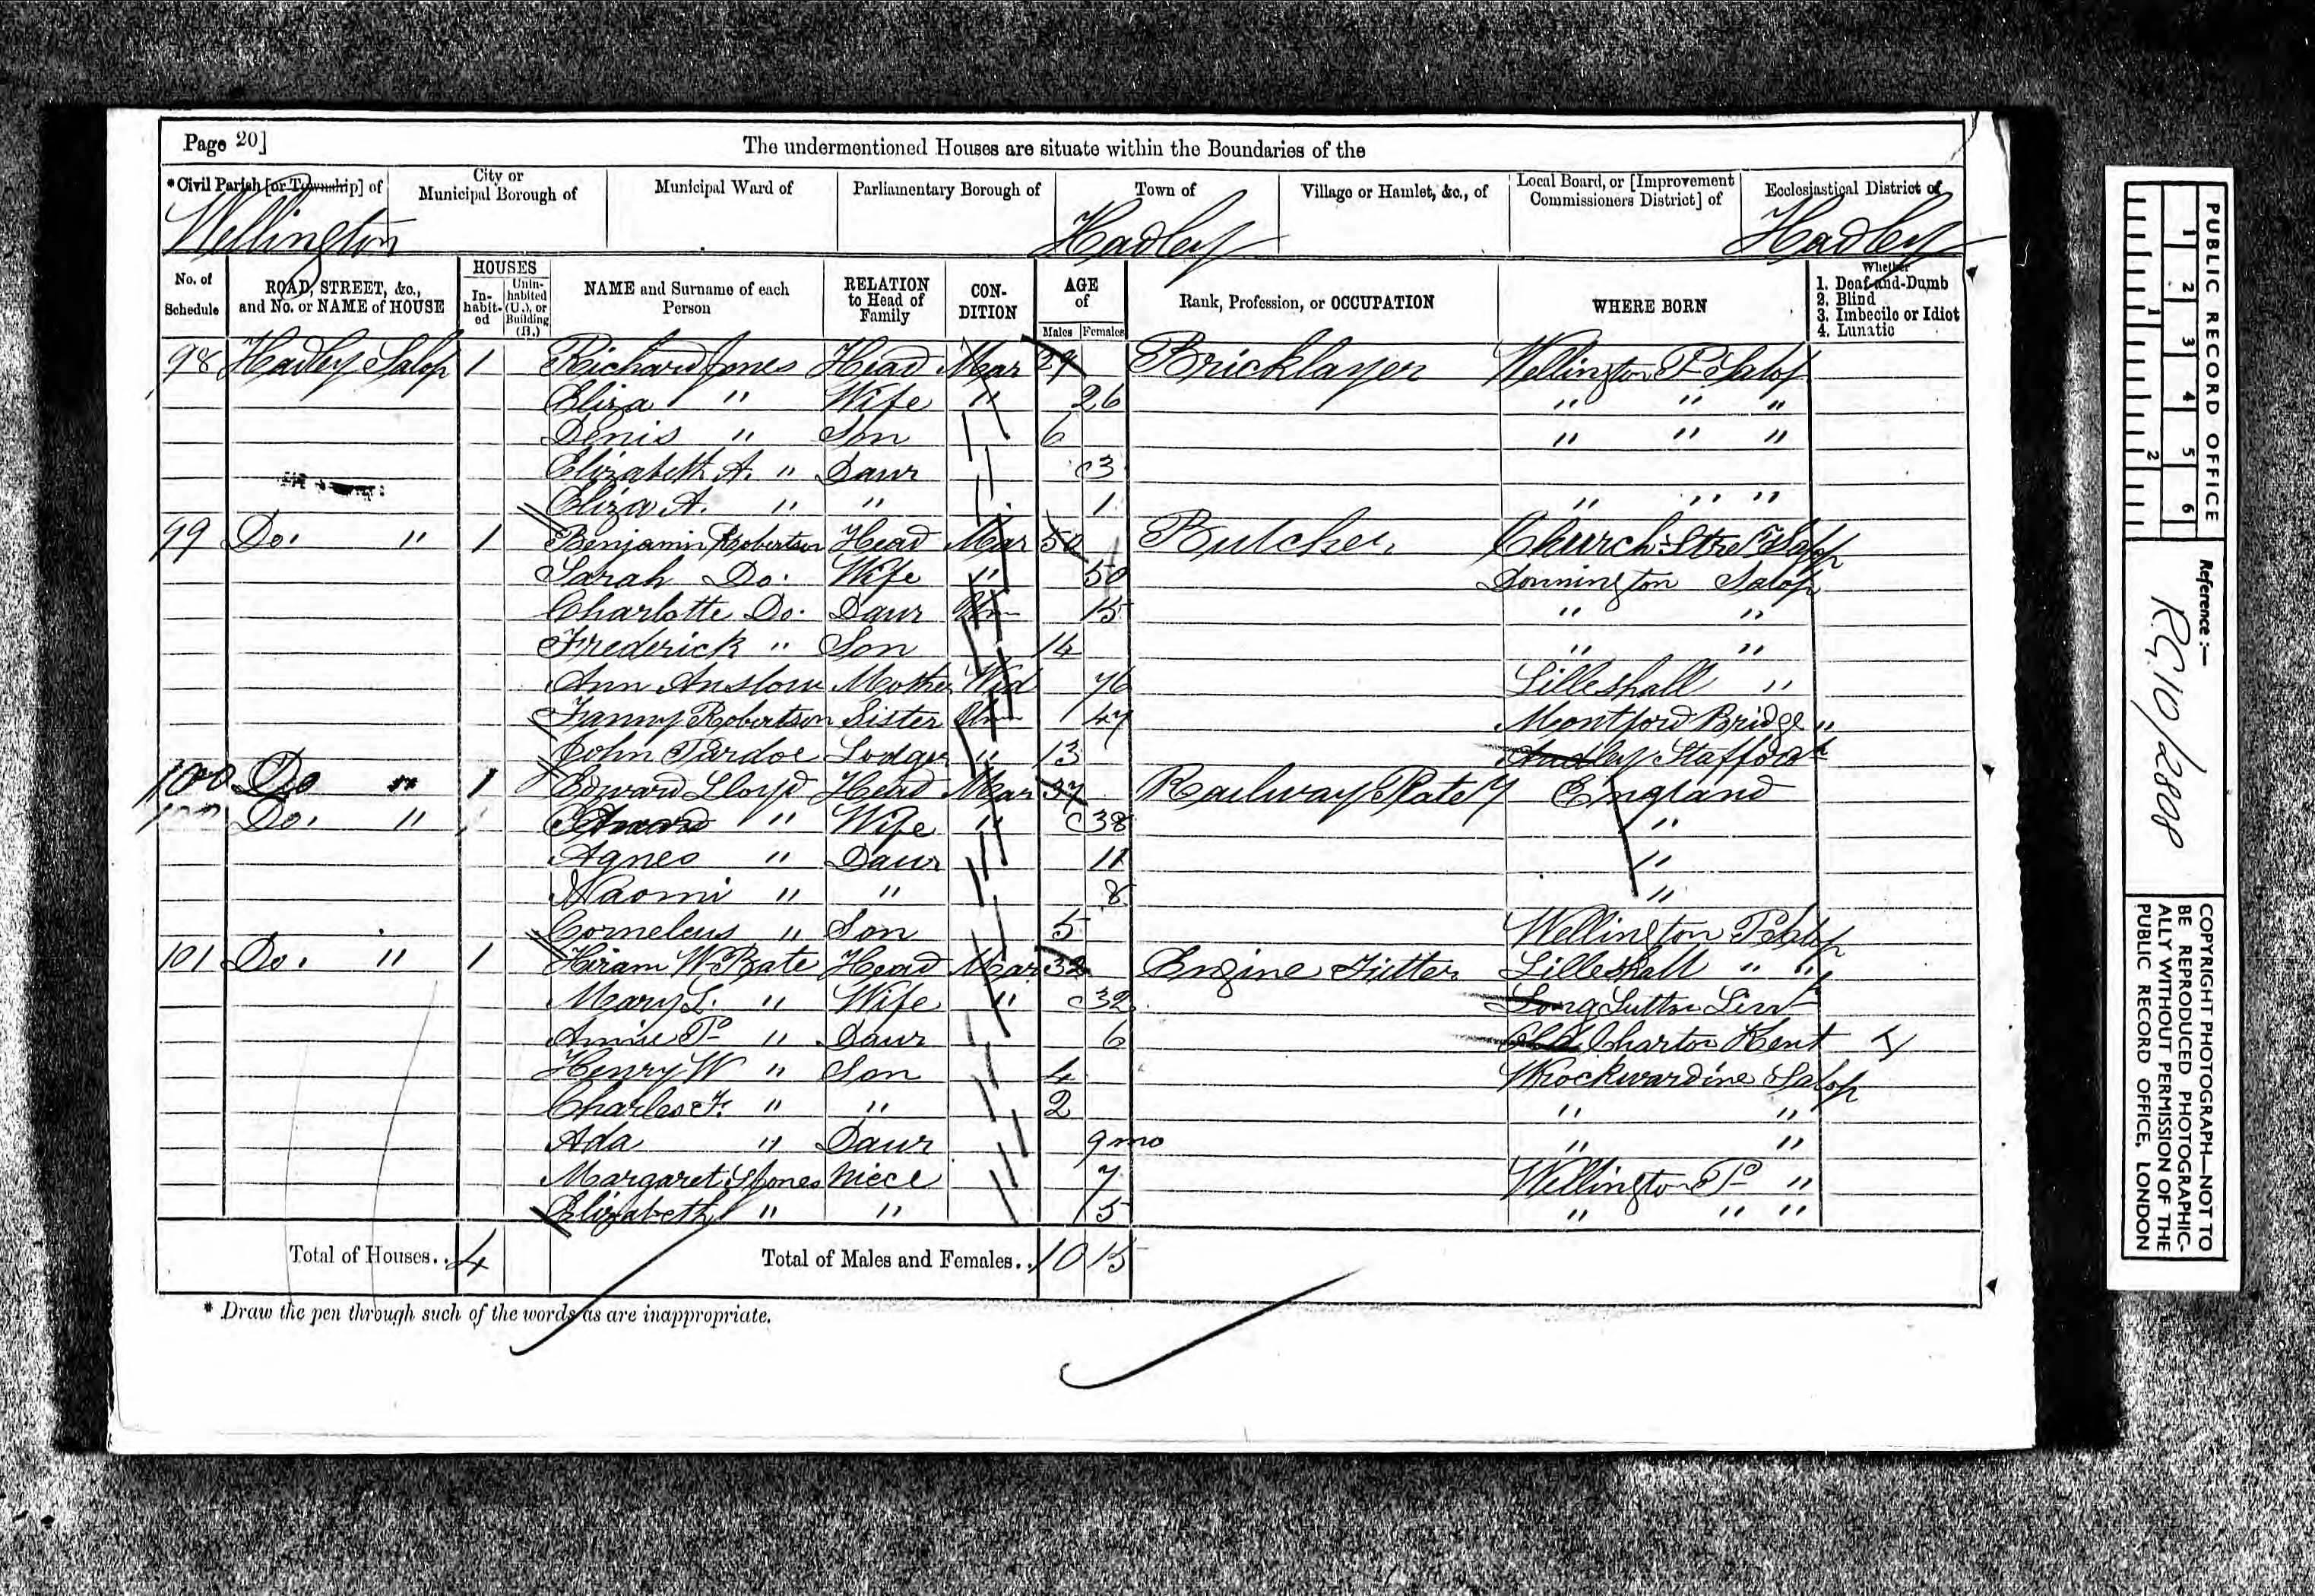 Page 20]
The undermentioned Houses are situate within the Boundaries of the
*Civil Parish [or Township] of City or Municipal Borough of Municipal Ward of Parliamentary Borough of Town of Village or Hamlet, &c., of Local Board, or [Improvement Commissioners District] of Ecclesiastical District of
Wellington Hadley Hadley
No. of Schedule ROAD, STREET, &c., and No. or NAME of HOUSE HOUSES Inhabited Uninhabited (U.), or Building (B.) NAME and Surname of each Person RELATION to Head of Family CONDITION AGE of Males Females Rank, Profession, or OCCUPATION WHERE BORN Whether 1. Deaf-and-Dumb 2. Blind 3. Imbecile or Idiot 4. Lunatic
98 Hadley Salop 1 Richard Jones Head Mar Bricklayer Wellington P Salop
Eliza " Wife " 26 " " "
Denis " Son 6 " " "
Elizabeth A. " Daur 3
Eliza A. " " 1 " " "
99 Do. " 1 Benjamin Robertson Head Mar 50 Butcher Church Salop
Sarah Do. Wife " 50 Donnington Salop
Charlotte Do. Daur Unm 15 " "
Frederick " Son 14 " "
Ann Anslow Mother Wid 76 Lilleshall "
Fanny Robertson Sister Unm 47 Montford Bridge "
John Pardoe Lodger " 13
100 Do " 1 Edward Lloyd Head Mar 37 Railway England
Do. " " Wife " 38 "
Agnes " Daur 11 "
Naomi " " 8 "
Corneleus " Son 5 Wellington P Salop
101 Do. " 1 Hiram W Bate Head Mar 32 Engine Fitter Lilleshall " "
Mary L. " Wife " 32 Long Sutton
Annie P " Daur 6 Charton Kent
Henry W " Son 4 Wrockwardine Salop
Charles F. " " 2 " "
Ada " Daur 9 mo " "
Margaret Jones Niece 7 Wellington P "
Elizabeth " " 5 " " "
Total of Houses.. 4 Total of Males and Females.. 10 15
* Draw the pen through such of the words as are inappropriate.
PUBLIC RECORD OFFICE
1 2 3 4 5 6
1 2
Reference :—
R.G. 10/2808
COPYRIGHT PHOTOGRAPH—NOT TO BE REPRODUCED PHOTOGRAPHICALLY WITHOUT PERMISSION OF THE PUBLIC RECORD OFFICE, LONDON